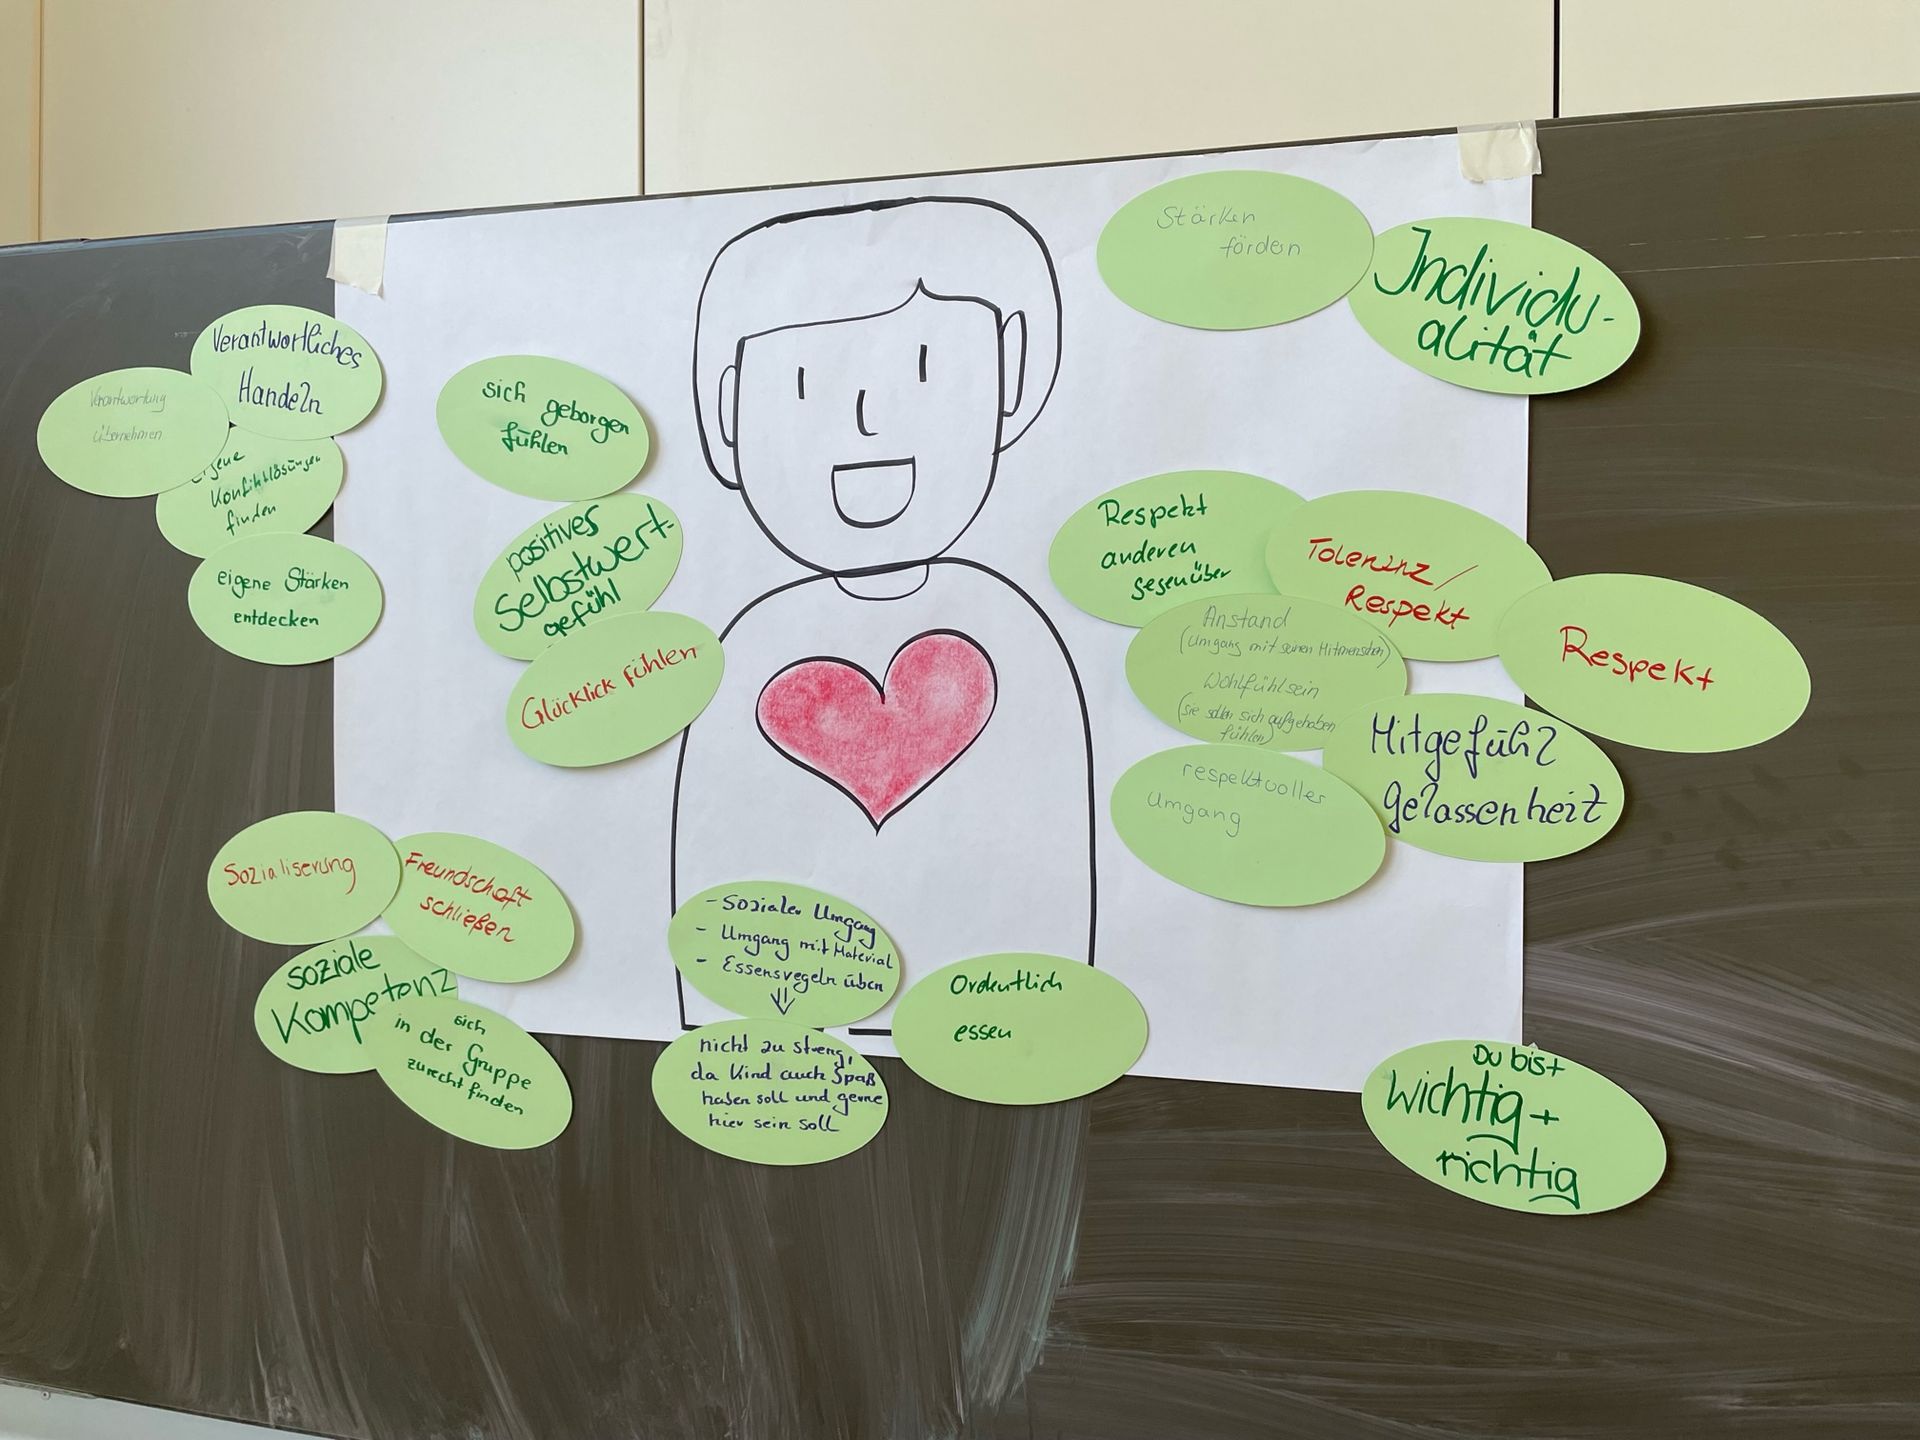 Stärken
fördern
Individu-
alität
Verantwortliches
Handeln
Verantwortung
übernehmen
eigene
Konfliktlösungen
finden
eigene Stärken
entdecken
sich geborgen
fühlen
positives
Selbstwert-
gefühl
Glücklick fühlen
Respekt
anderen
gegenüber
Toleranz/
Respekt
Respekt
Anstand
(Umgang mit seinen Mitmenschen)
Wohlfühlsein
(sie sollen sich aufgehoben
fühlen)
Mitgefühl
Gelassenheit
respektvoller
Umgang
Sozialiserung
Freundschaft
schließen
soziale
Kompetenz
sich
in der Gruppe
zurecht finden
- Sozialer Umgang
- Umgang mit Material
- Essensregeln üben
⇓
nicht zu streng,
da Kind auch Spaß
haben soll und gerne
hier sein soll
Ordentlich
essen
Du bist
wichtig +
richtig